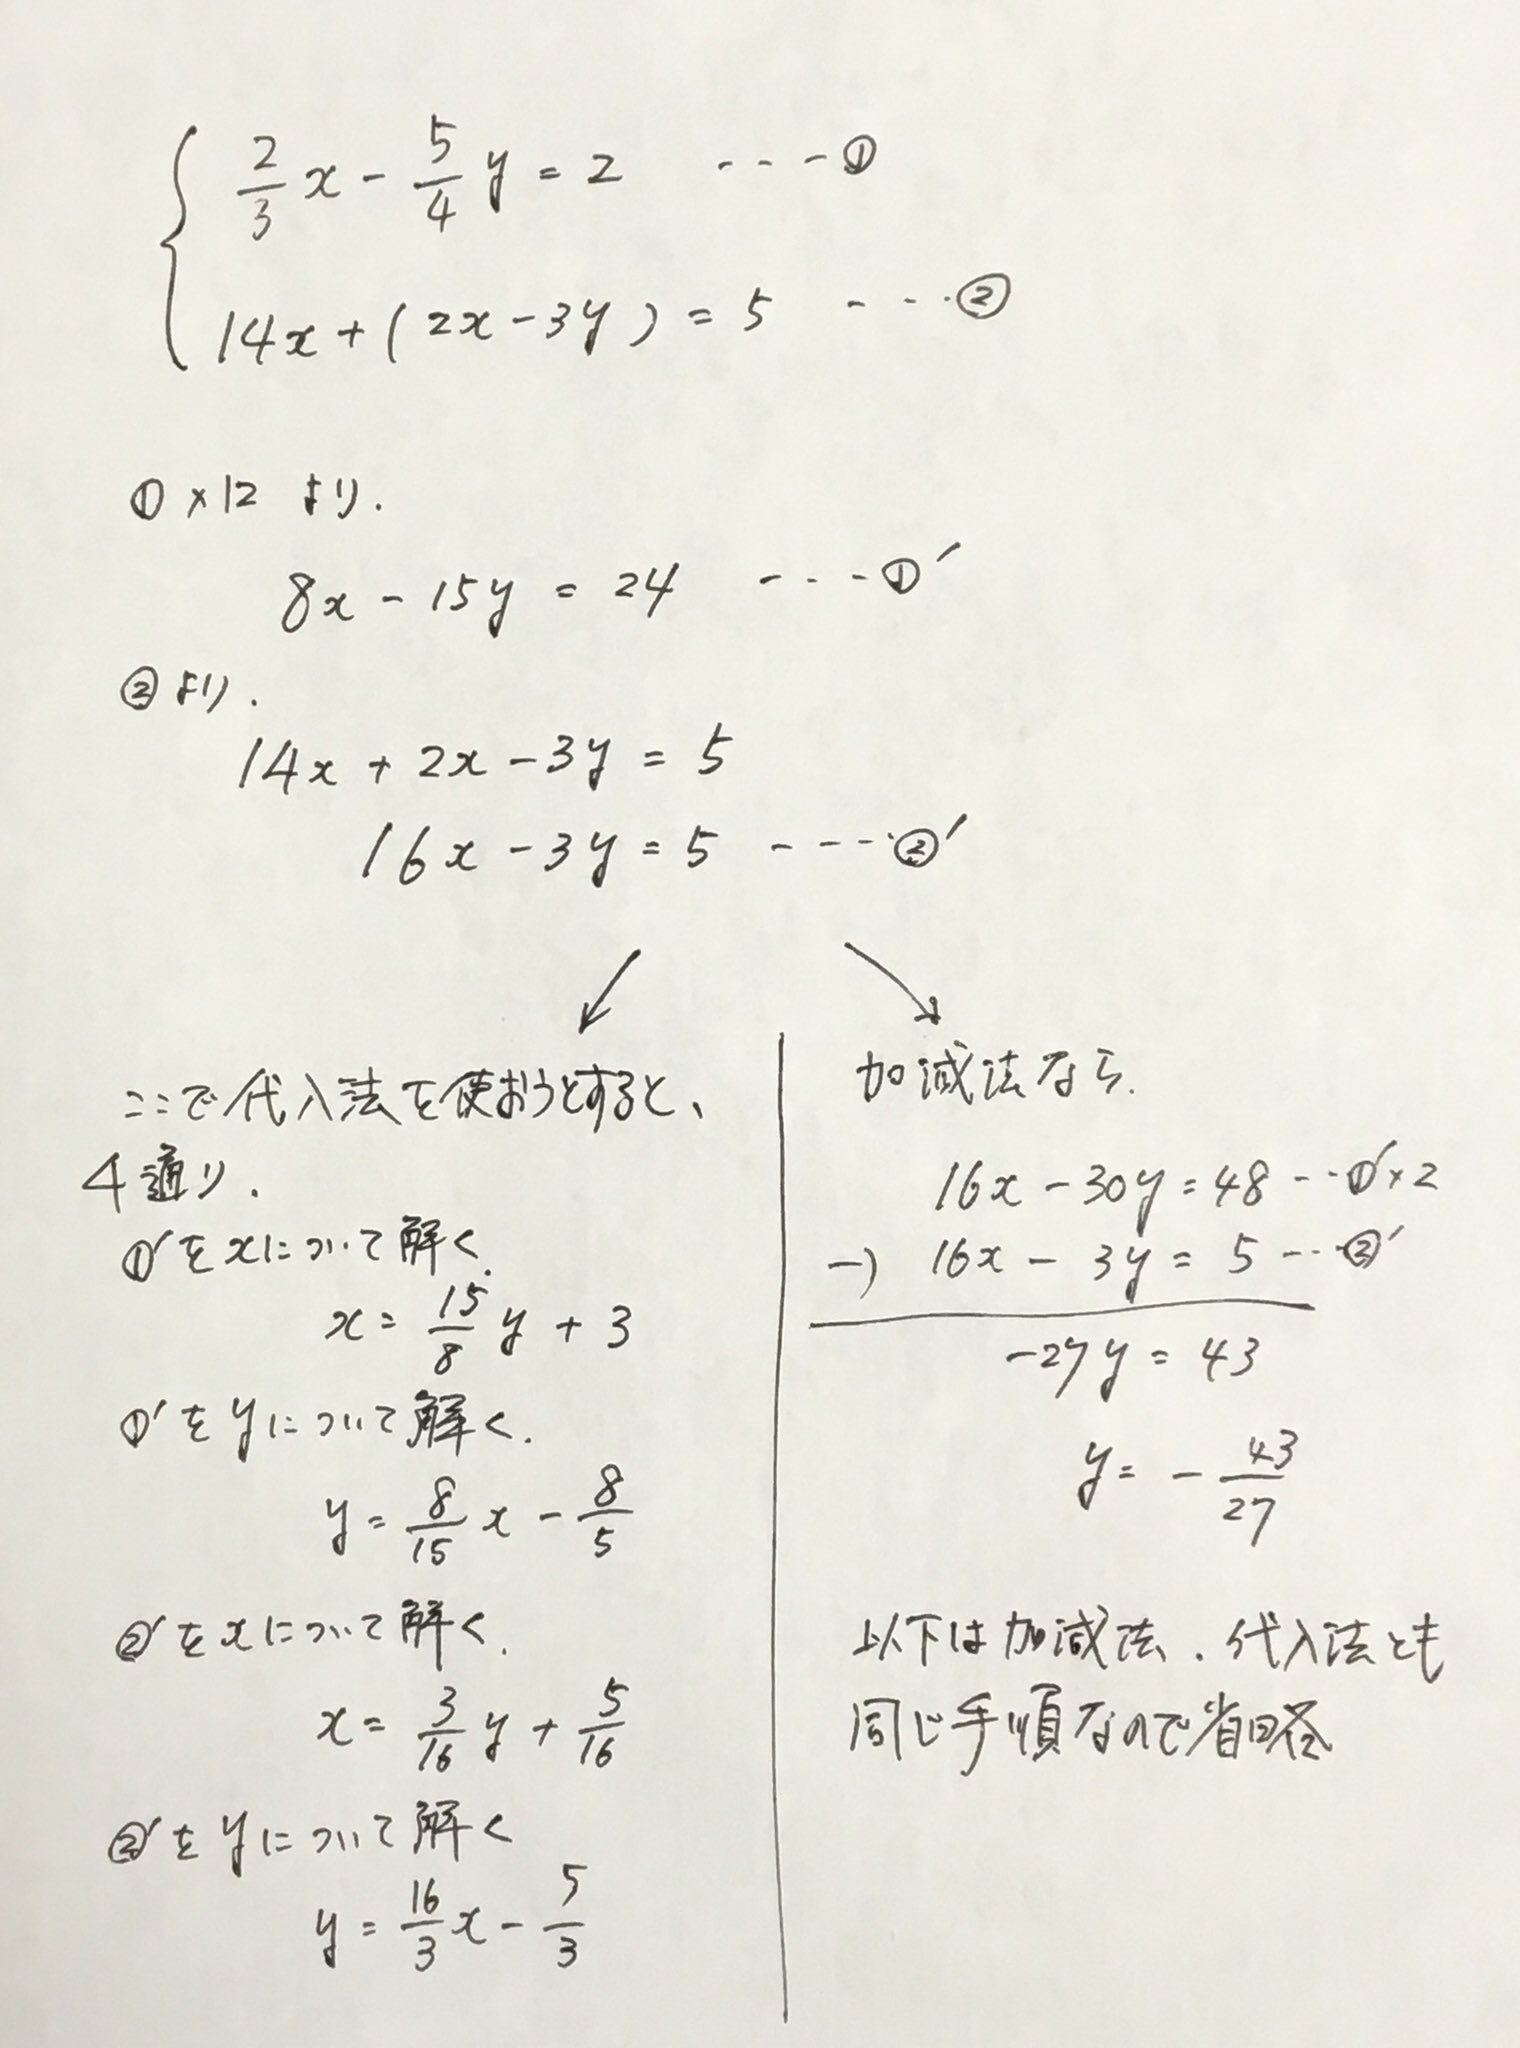 2/3 x - 5/4 y = 2 ---①
14x + (2x - 3y) = 5 ---②
①×12 より.
8x - 15y = 24 ----①′
②より.
14x + 2x - 3y = 5
16x - 3y = 5 -----②′
ここで代入法を使おうとすると、
4通り.
①′をxについて解く.
x = 15/8 y + 3
①′をyについて解く.
y = 8/15 x - 8/5
②′をxについて解く.
x = 3/16 y + 5/16
②′をyについて解く
y = 16/3 x - 5/3
加減法なら.
16x - 30y = 48 ---①′×2
-) 16x - 3y = 5 ---②′
-27y = 43
y = - 43/27
以下は加減法、代入法とも
同じ手順なので省略